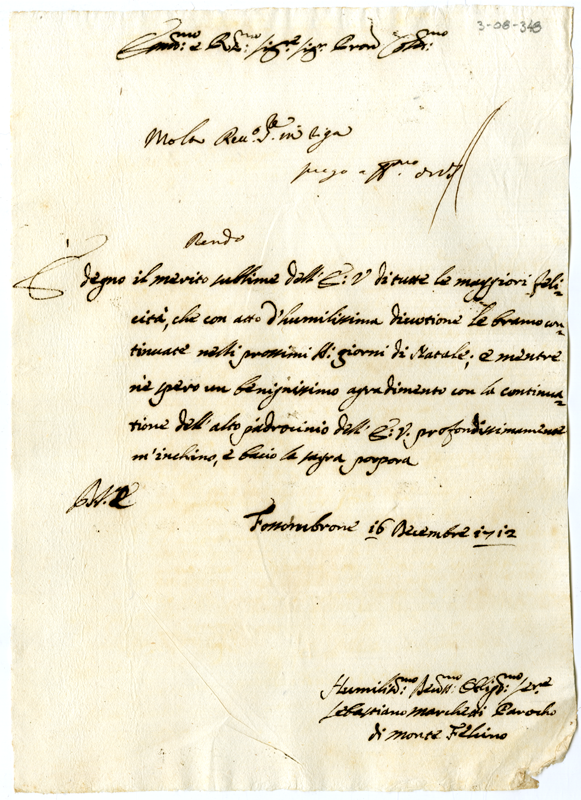 3-08-348
Em:mo e R:mo Sig:re Sig:r Pron Col:mo
Molto Reu:o in riga
prego
Rendo
È degno il merito sublime dell' E: V di tutte le maggiori feli-
cità, che con atto d'humilissima diuotione le bramo con-
tinuate nelli prossimi SS: giorni di Natale; e mentre
nè spero un benignissimo agradimento con la continua-
tione dell' alto padrocinio dell' E: V. profondissimamente
m'inchino, e bacio la sagra porpora
D. V. E.
Fossombrone 16 Decembre 1712
Humiliss:mo Deuot:mo Oblig:mo Ser:e
Sebastiano Marchetti Parocho
di Monte Felcino